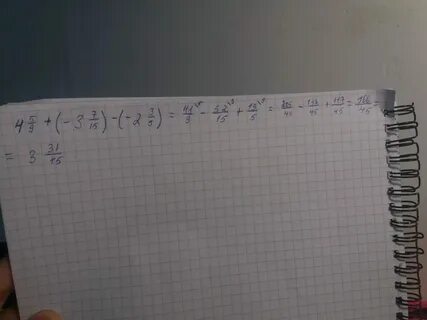 4 5/9 + (- 3 7/15) - (- 2 3/5) = 41/9 - 52/15 + 13/5 = 205/45 - 156/45 + 117/45 = 166/45 =
= 3 31/45